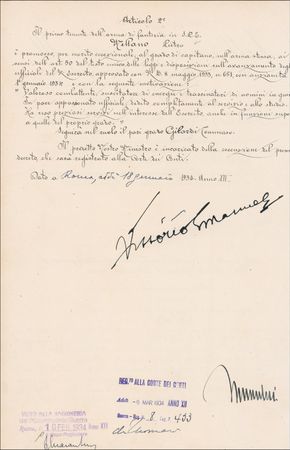 Articolo 2º
Il primo tenente dell'arma di fanteria in S.P.E.
Milano Pietro
è promosso, per merito eccezionale, al grado di capitano, nell'arma stessa, ai
sensi dell'art. 50 del testo unico delle leggi e disposizioni sull'avanzamento degli
ufficiali del R. Esercito, approvato con R.D. 8 maggio 1933, n. 651, con anzianità
1 gennaio 1934 e con la seguente motivazione:
"Valoroso combattente, suscitatore di energie e trascinatore di uomini in guerra.
In pace appassionato ufficiale, dedito completamente al servizio e allo studio.
Ha reso preziosi servizi nell'interesse dell'Esercito, anche in funzioni superiori
a quelle del proprio grado."
Segua nel ruolo il pari grado Gilardi Tommaso.
Il predetto Nostro Ministro è incaricato della esecuzione del presente
decreto, che sarà registrato alla Corte dei Conti.
Dato a Roma, addì 18 gennaio 1934 Anno XII
Vittorio Emanuele
REG.TO ALLA CORTE DEI CONTI
Addì 6 MAR 1934 ANNO XII
8 433
Mussolini
VISTO ALLA RAGIONERIA
Roma, 10 FEB. 1934 Anno XII